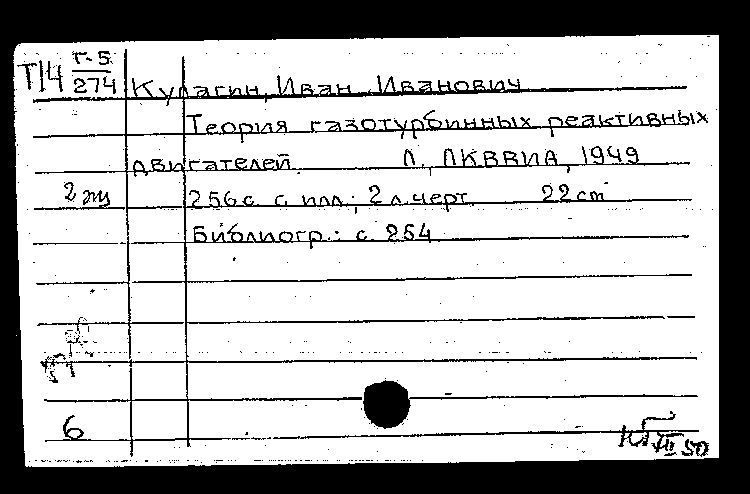 Т14 Г-5
274
Кулагин, Иван Иванович
Теория газотурбинных реактивных
двигателей. Л., ЛКВВИА, 1949
2 экз
256 с. с илл.; 2 л. черт. 22 cm
Библиогр.: с. 254
6
III 50